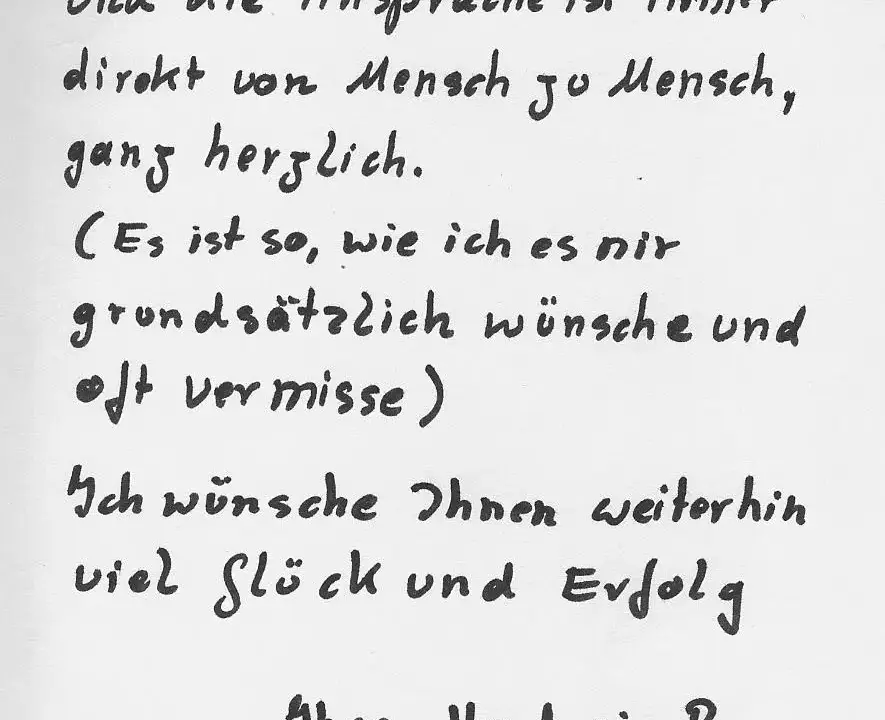 und die Ansprache ist immer
direkt von Mensch zu Mensch,
ganz herzlich.
(Es ist so, wie ich es mir
grundsätzlich wünsche und
oft vermisse)
Ich wünsche Ihnen weiterhin
viel Glück und Erfolg